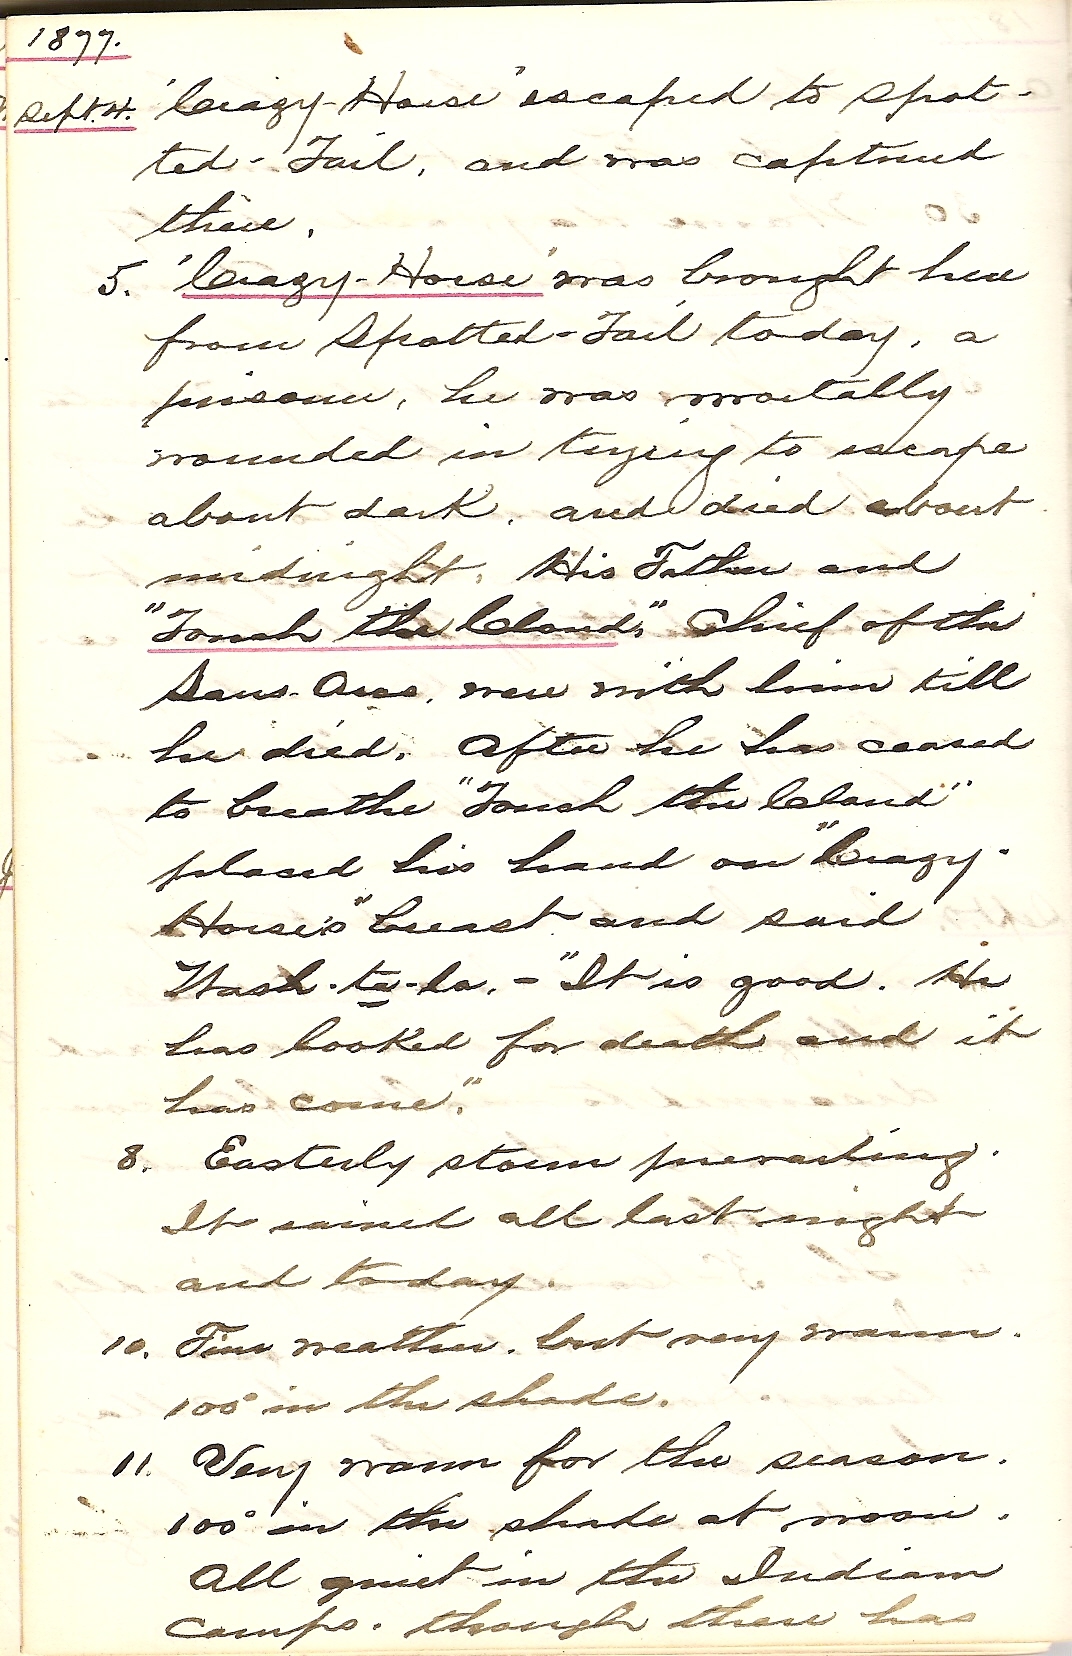 1877.
Sept. 4. "Crazy-Horse" escaped to Spot-
ted-Tail, and was captured
there.
5. "Crazy-Horse" was brought here
from Spotted-Tail today, a
prisoner, he was mortally
wounded in trying to escape
about dark, and died about
midnight. His Father and
"Touch the Cloud," Chief of the
Sans-Arcs, were with him till
he died. After he has ceased
to breathe "Touch the Cloud"
placed his hand on "Crazy-
Horse's" breast and said
Wash-ta-la, - "It is good. He
has looked for death and it
has come".
8. Easterly storm prevailing.
It rained all last night
and today.
10. Fine weather, but very warm.
100° in the shade.
11. Very warm for the season.
100° in the shade at noon.
All quiet in the Indian
camps, though there has